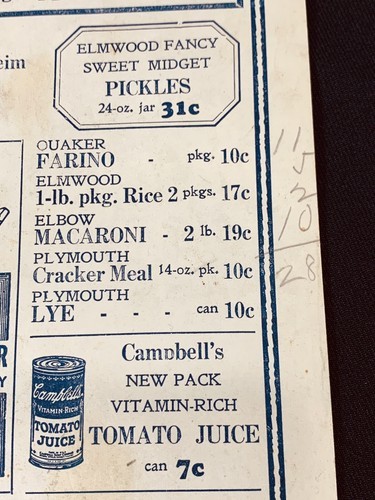 eim
ELMWOOD FANCY
SWEET MIDGET
PICKLES
24-oz. jar 31c
QUAKER
FARINO - pkg. 10c
ELMWOOD
1-lb. pkg. Rice 2 pkgs. 17c
ELBOW
MACARONI - 2 lb. 19c
PLYMOUTH
Cracker Meal 14-oz. pk. 10c
PLYMOUTH
LYE - - - can 10c
Campbell's
NEW PACK
VITAMIN-RICH
TOMATO JUICE
can 7c
Campbell's
VITAMIN-RICH
TOMATO
JUICE
R
Y
11
5
2
10
28